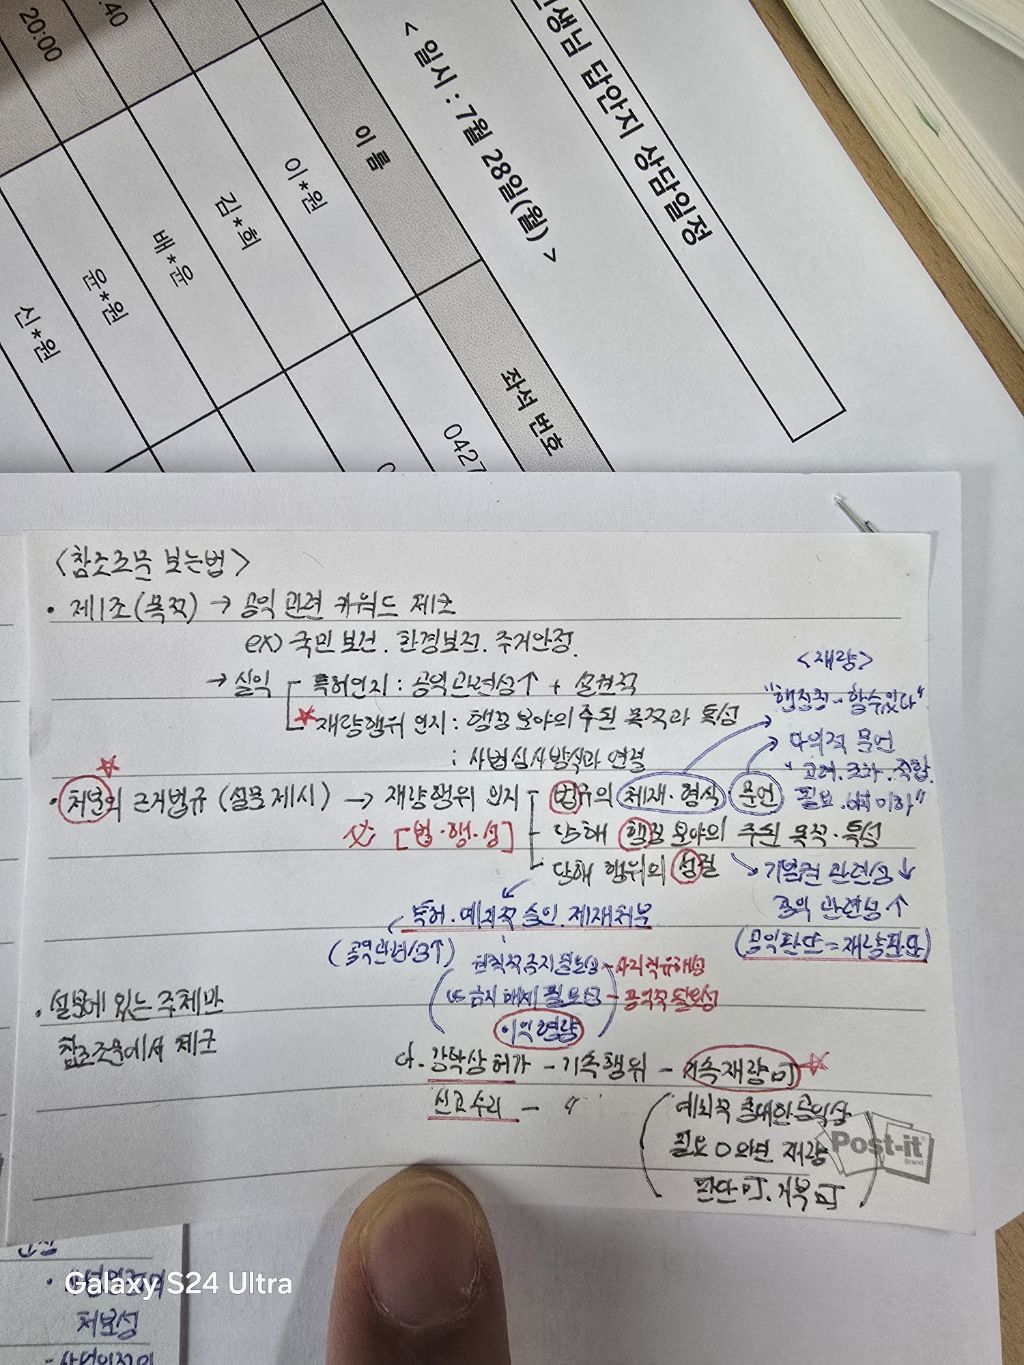 생님 답안지 상담일정
< 일시 : 7월 28일(월) >
이 름
좌석 번호
:40
20:00
이*원
0427
김*희
배*윤
윤*원
신*원
<참조조문 보는법>
· 제1조(목적) → 공익 관련 키워드 체크
ex) 국민 보건. 환경보전. 주거안정.
→ 실익 특허인지 : 공익관련성↑ + 설권적
★재량행위 인지 : 행정분야의 주된 목적과 특성
: 사법심사방식과 연결
<재량>
"행정청~할 수 있다"
다의적 문언
"고려. 조화. 적합.
필요. 이하"
· 처분의 근거법규 (설문 제시) → 재량행위 인지 법규의 체재·형식 문언
[법·행·성] 당해 행정분야의 주된 목적·특성
당해 행위의 성질
기본권 관련성↓
공익 관련성↑
(공익판단=재량판단)
특허·예외적 승인. 제재처분
(공익관련성↑)
원칙적금지필요성-사회적유해성
vs 금지해제 필요성-공익적필요성
이익형량
· 설문에 있는 주체만
참조조문에서 체크
다. 강학상 허가 - 기속행위 - 기속재량可 ★
신고수리 - 〃
예외적 중대한공익상
필요 O라면 재량
판단可. 거부可
Post-it
Brand
처분성
Galaxy S24 Ultra